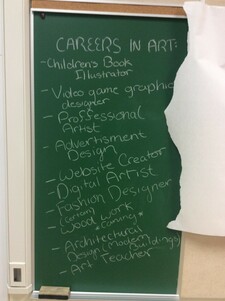 CAREERS IN ART:
- Children's Book
Illustrator
- Video game graphic
designer
- Proffessional
Artist
- Advertisment
Design
- Website Creator
- Digital Artist
- Fashion Designer
(cartoon)
- Wood work
- Architectural
Design (modern
Buildings)
- Art Teacher